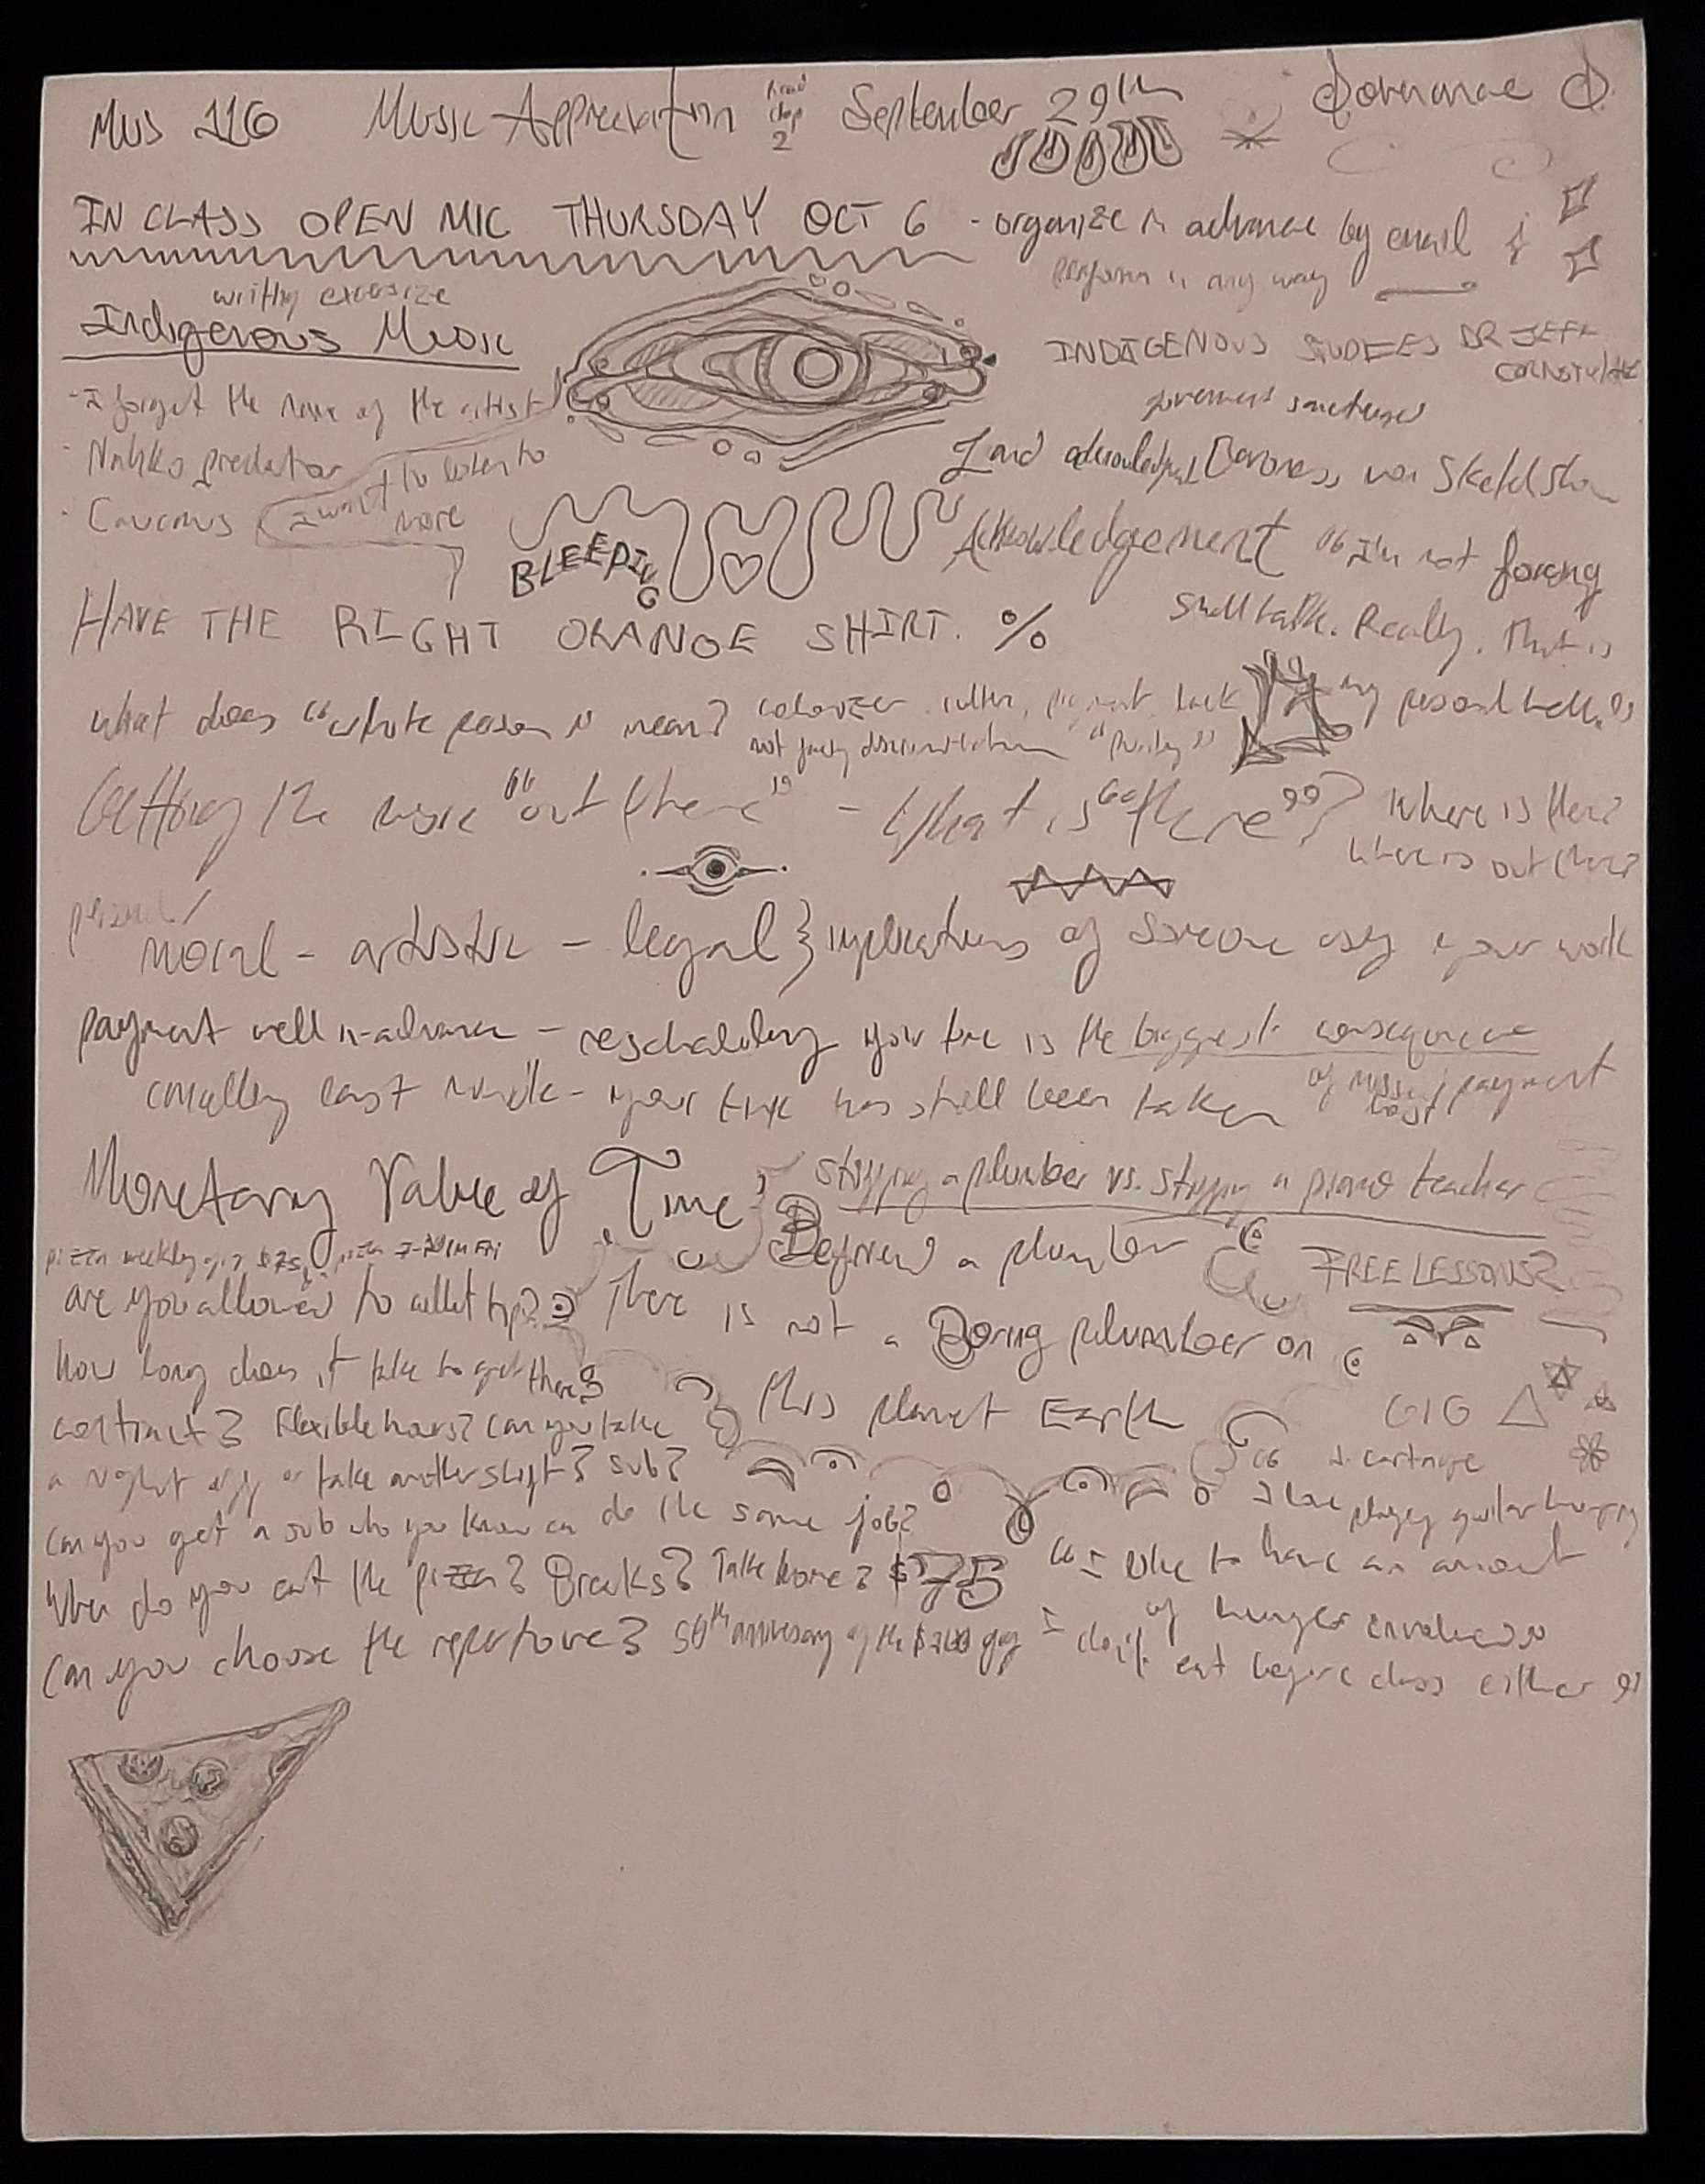 MUS 116 Music Appreciation September 29th
read chap 2
IN CLASS OPEN MIC THURSDAY OCT 6 - organize in advance by email
perform in any way
writing excersize
Indigenous Music
INDIGENOUS STUDIES DR JEFF
government sanctioned
- I forget the name of the artist
I want to listen to more
- Nahko predator
Land acknowledgment Baroness von Sketch Show
BLEEDING
Acknowledgement "I'm not forcing
small talk. Really. That is
my personal hell."
HAVE THE RIGHT ORANGE SHIRT. %
what does "white person" mean? colonizer, culture, pigment, lack
not facing discrimination "purity"
Getting the music "out there" - What is "there"? Where is there?
where is out there?
moral - artistic - legal } implications of someone using your work
payment well in-advance - rescheduling your time is the biggest consequence
of missing payment
cancelling last minute - your time has still been taken
Monetary Value of Time
stiffing a plumber vs. stiffing a piano teacher
Befriend a plumber
FREE LESSONS?
There is not a Boring plumber on
this planet Earth
are you allowed to collect tips?
how long does it take to get there?
contract? Flexible hours? can you take
a night off or take another shift? sub?
can you get a sub who you know can do the same job?
When do you eat the pizza? Breaks? Take home? $75
can you choose the repertoire? 50th anniversary of the gig
GIG
cartage
I like playing guitar hungry
"I like to have an amount
of hunger involved"
I don't eat before class either"